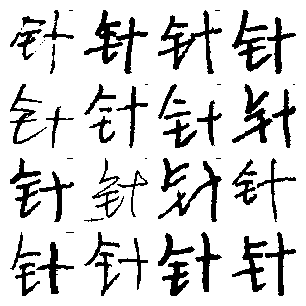 针针针针
针针针针
针针针针
针针针针